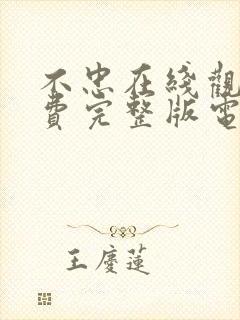 不忠在綫觀
費完整版電
王慶蓮